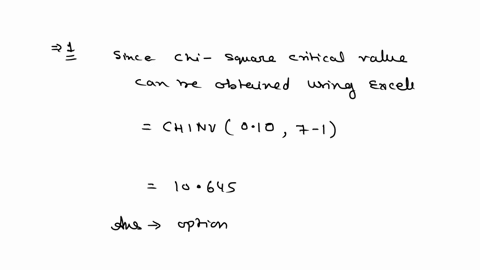 ⇒ 1 Since chi-square critical value
can be obtained using Excel
= CHINV (0.10, 7-1)
= 10.645
Ans → option